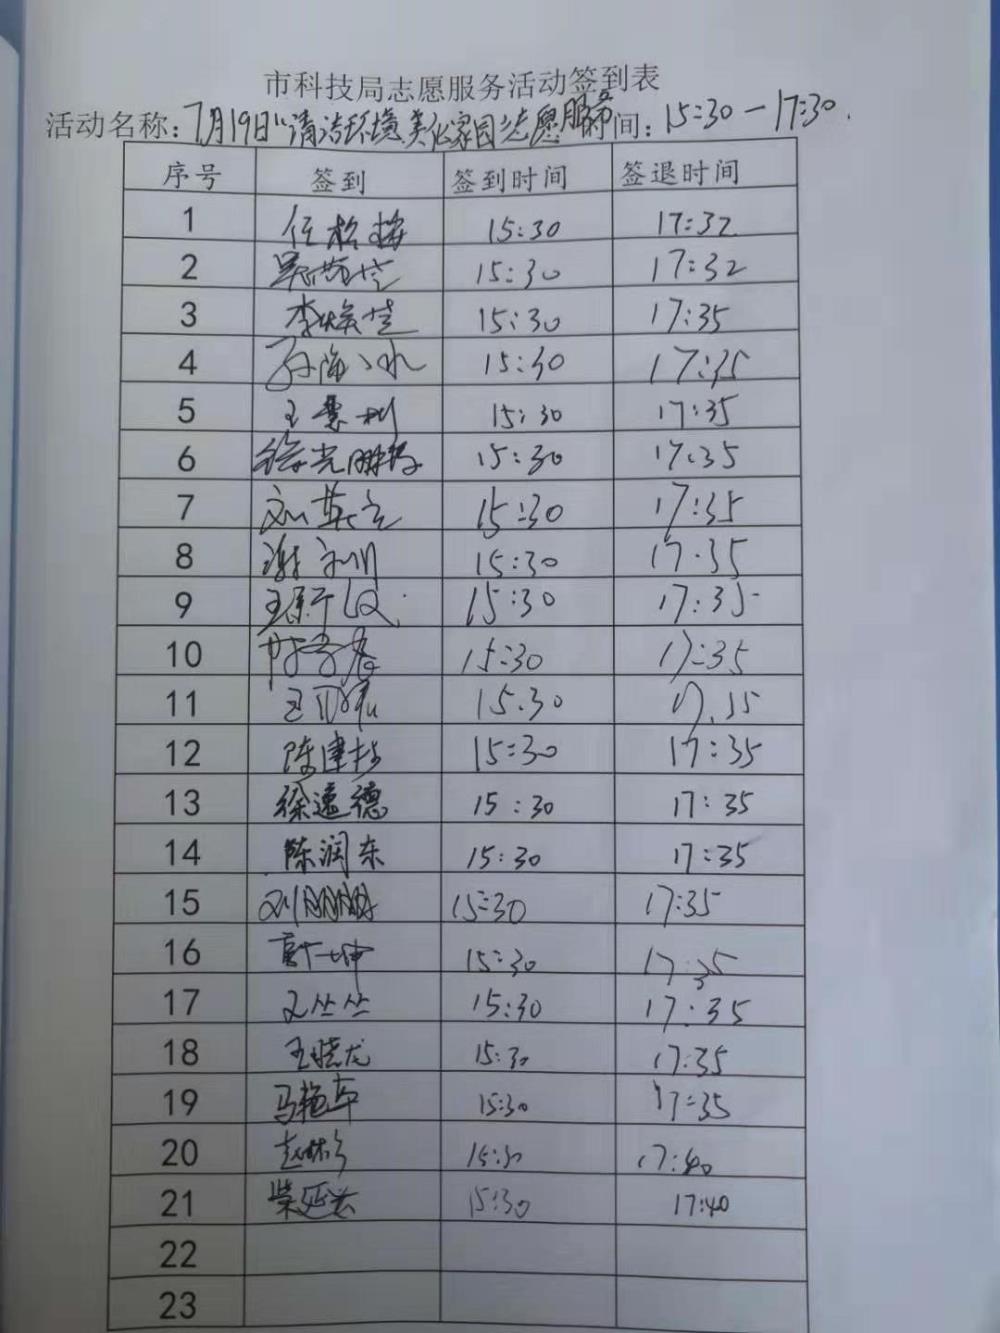 市科技局志愿服务活动签到表
活动名称：7月19日“清洁环境、美化家园”志愿服务 时间：15:30—17:30.
序号 签到 签到时间 签退时间
1 15:30 17:32
2 15:30 17:32
3 李焕 15:30 17:35
4 孙海冰 15:30 17:35
5 王慧 15:30 17:35
6 徐光 15:30 17:35
7 刘英 15:30 17:35
8 谢 15:30 17:35
9 王 15:30 17:35
10 15:30 17:35
11 王 15:30 17.35
12 陈建 15:30 17:35
13 徐遵德 15:30 17:35
14 陈润东 15:30 17:35
15 刘朋朋 15:30 17:35
16 坤 15:30 17:35
17 丛丛 15:30 17:35
18 王晓龙 15:30 17:35
19 马艳苹 15:30 17:35
20 赵 15:30 17:40
21 柴延 15:30 17:40
22
23